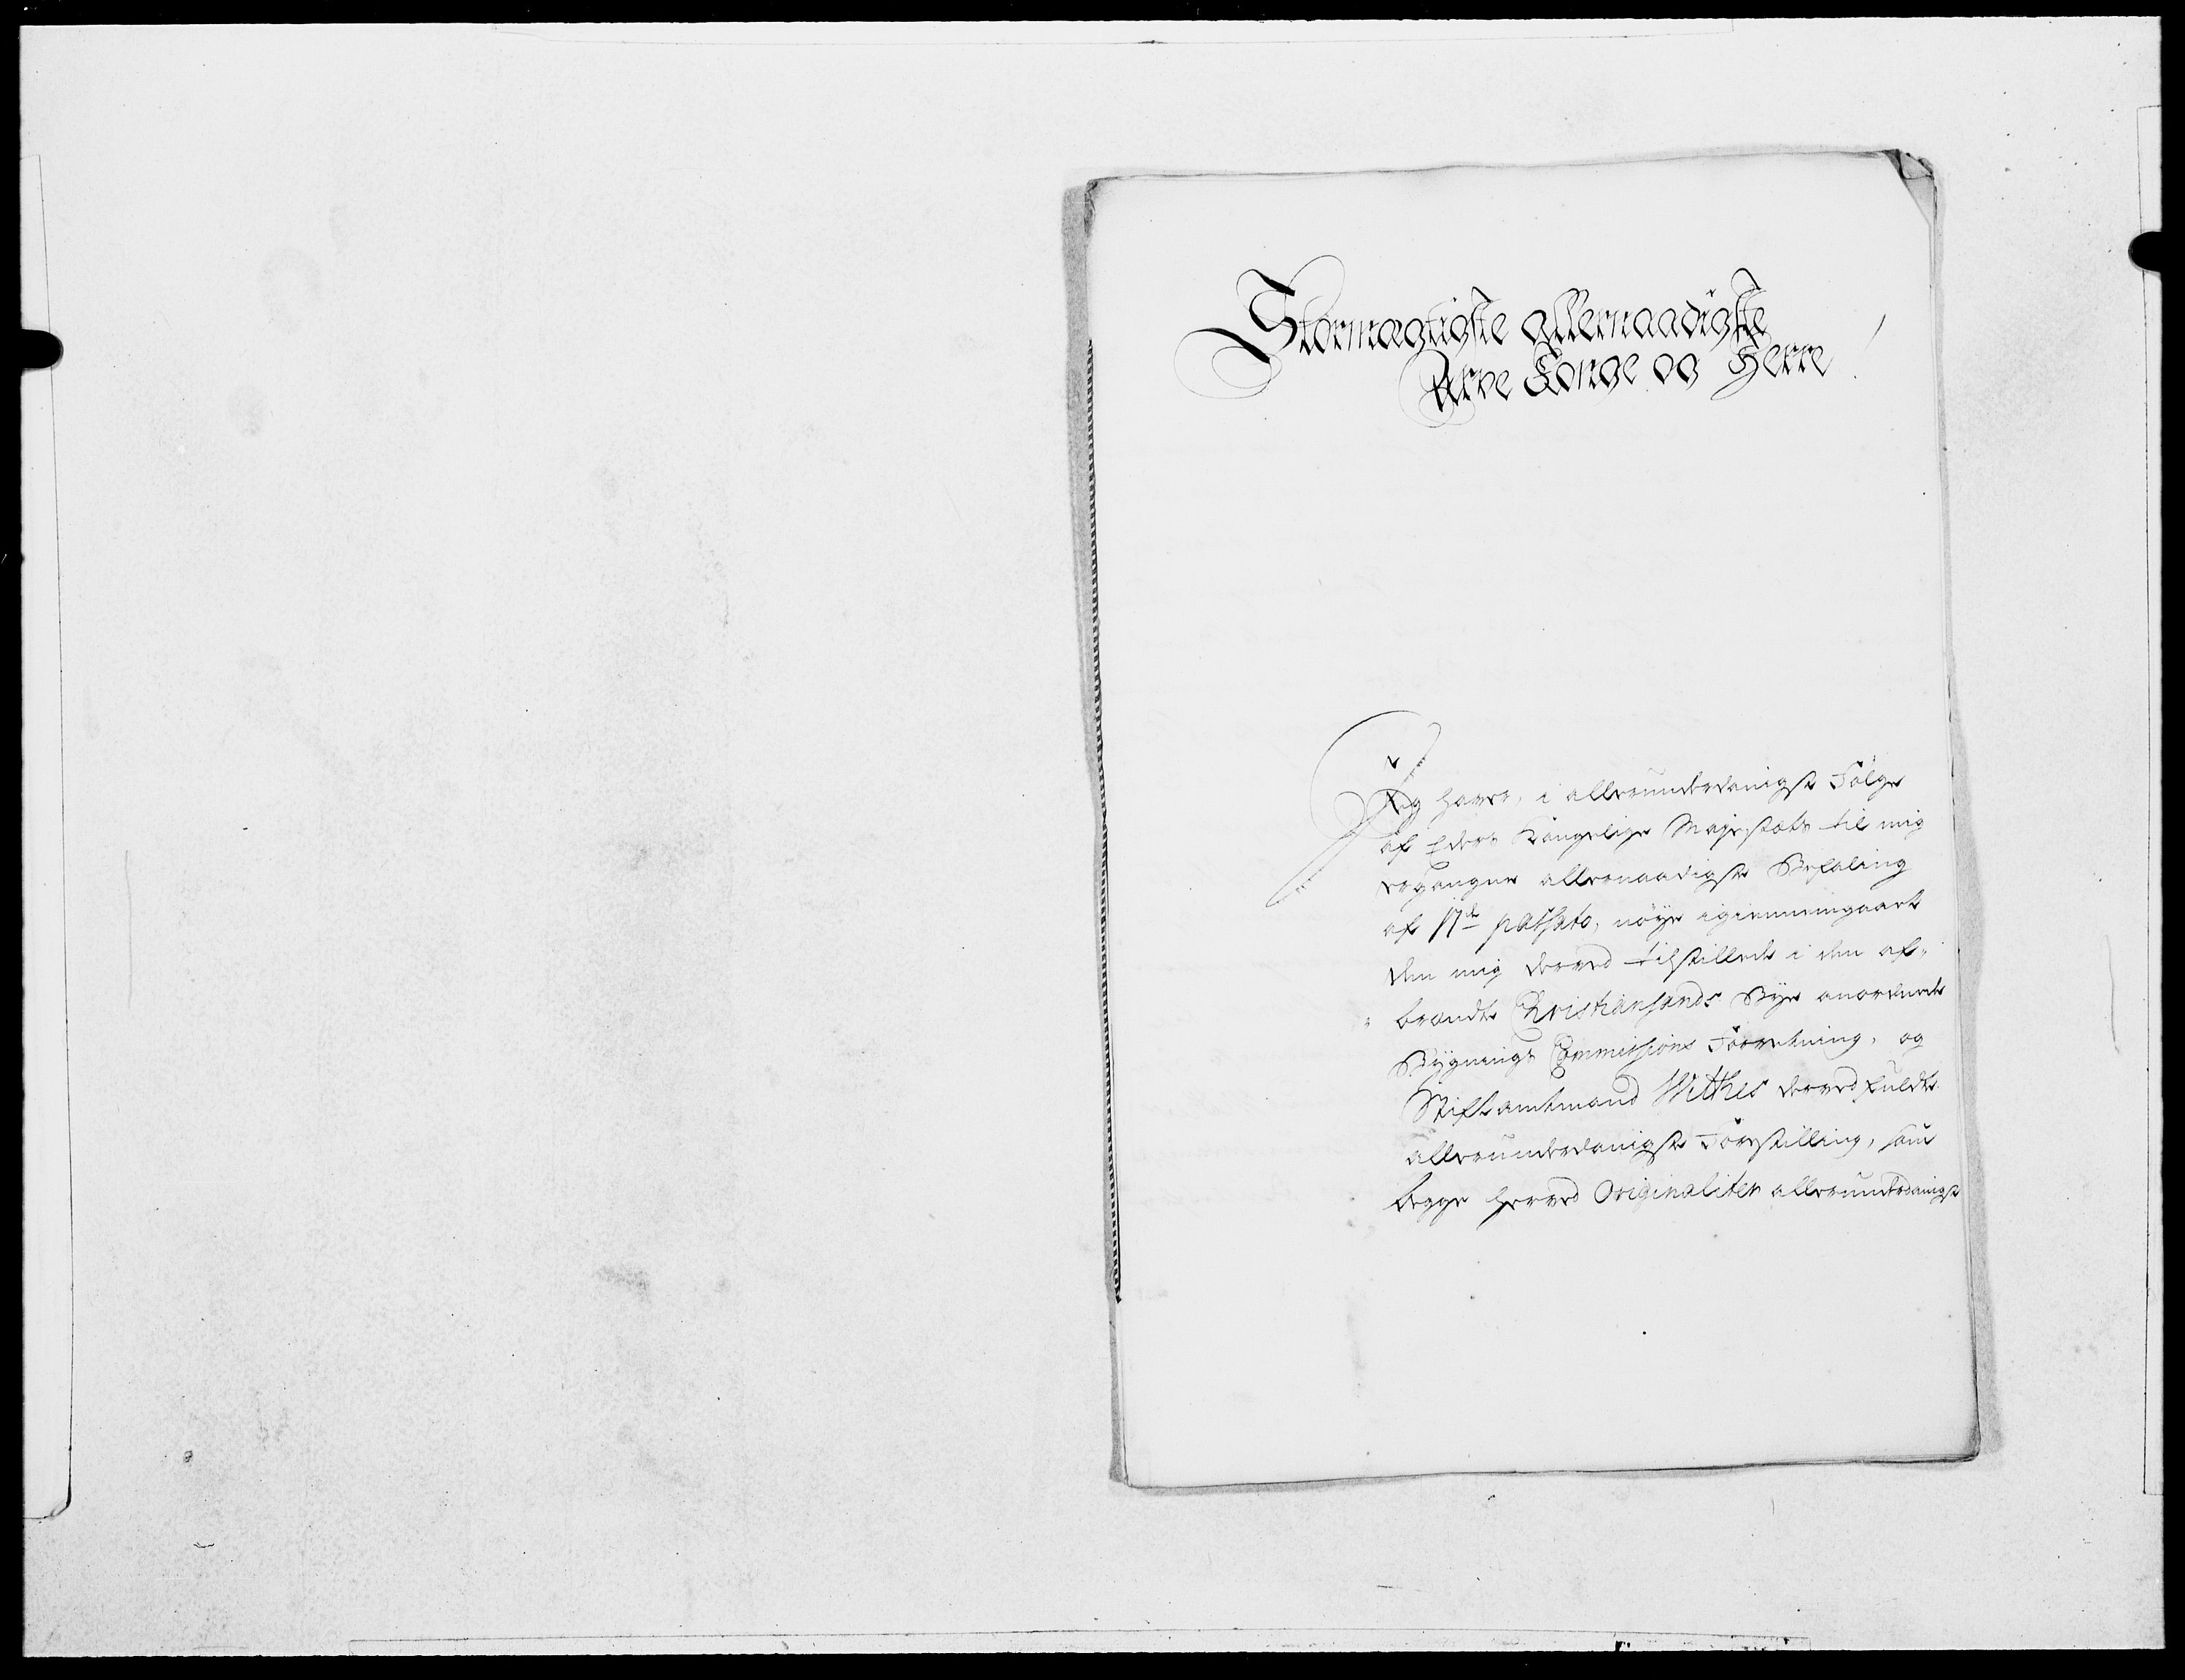 Stormægtigste allernaadigste
Arve Konge og Herre
Jeg haver, i allerunderdanigst Fölge
af Eders Kongelige Majestæts til mig
ergangne allernaadigste Befaling
af 17de passato, nöye igiennemgaaet
den mig derved tilstillede i den af„
„brændte Christiansands Bye anordnede
Bygnings Commissions Forretning, og
Stiftamtmand Withes derved fuldte
allerunderdanigste Forestilling, som
begge herved Originaliter allerunderdanigst